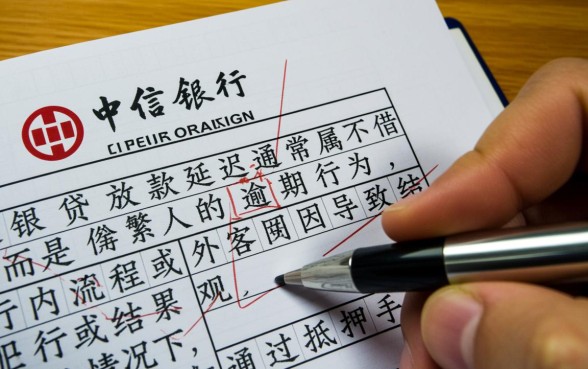 中信银行
CIPEUR ORAISIGN
银贷放款延迟通常属不借
而是 繁人的逾期行为，
行内流程或外客 因导致结
行或结果观，
情况下，通过抵押手